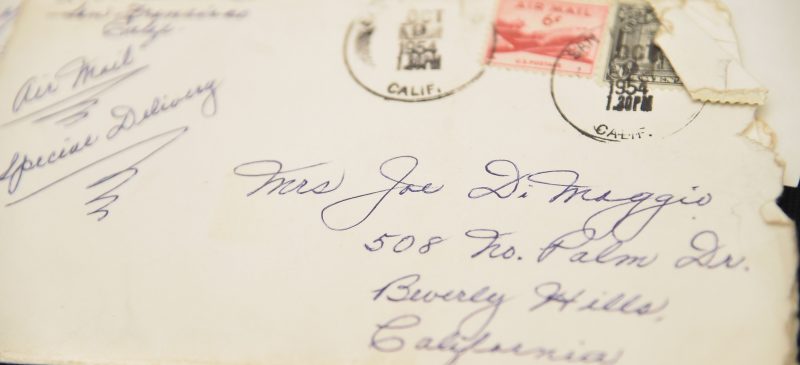 San Francisco
Calif.
Air Mail
Special Delivery
OCT
9
1954
1.30PM
CALIF.
AIR MAIL
6¢
U.S. POSTAGE
SAN
OCT
9
1954
1.30PM
CALIF.
Mrs Joe Di Maggio
508 No. Palm Dr.
Beverly Hills,
California